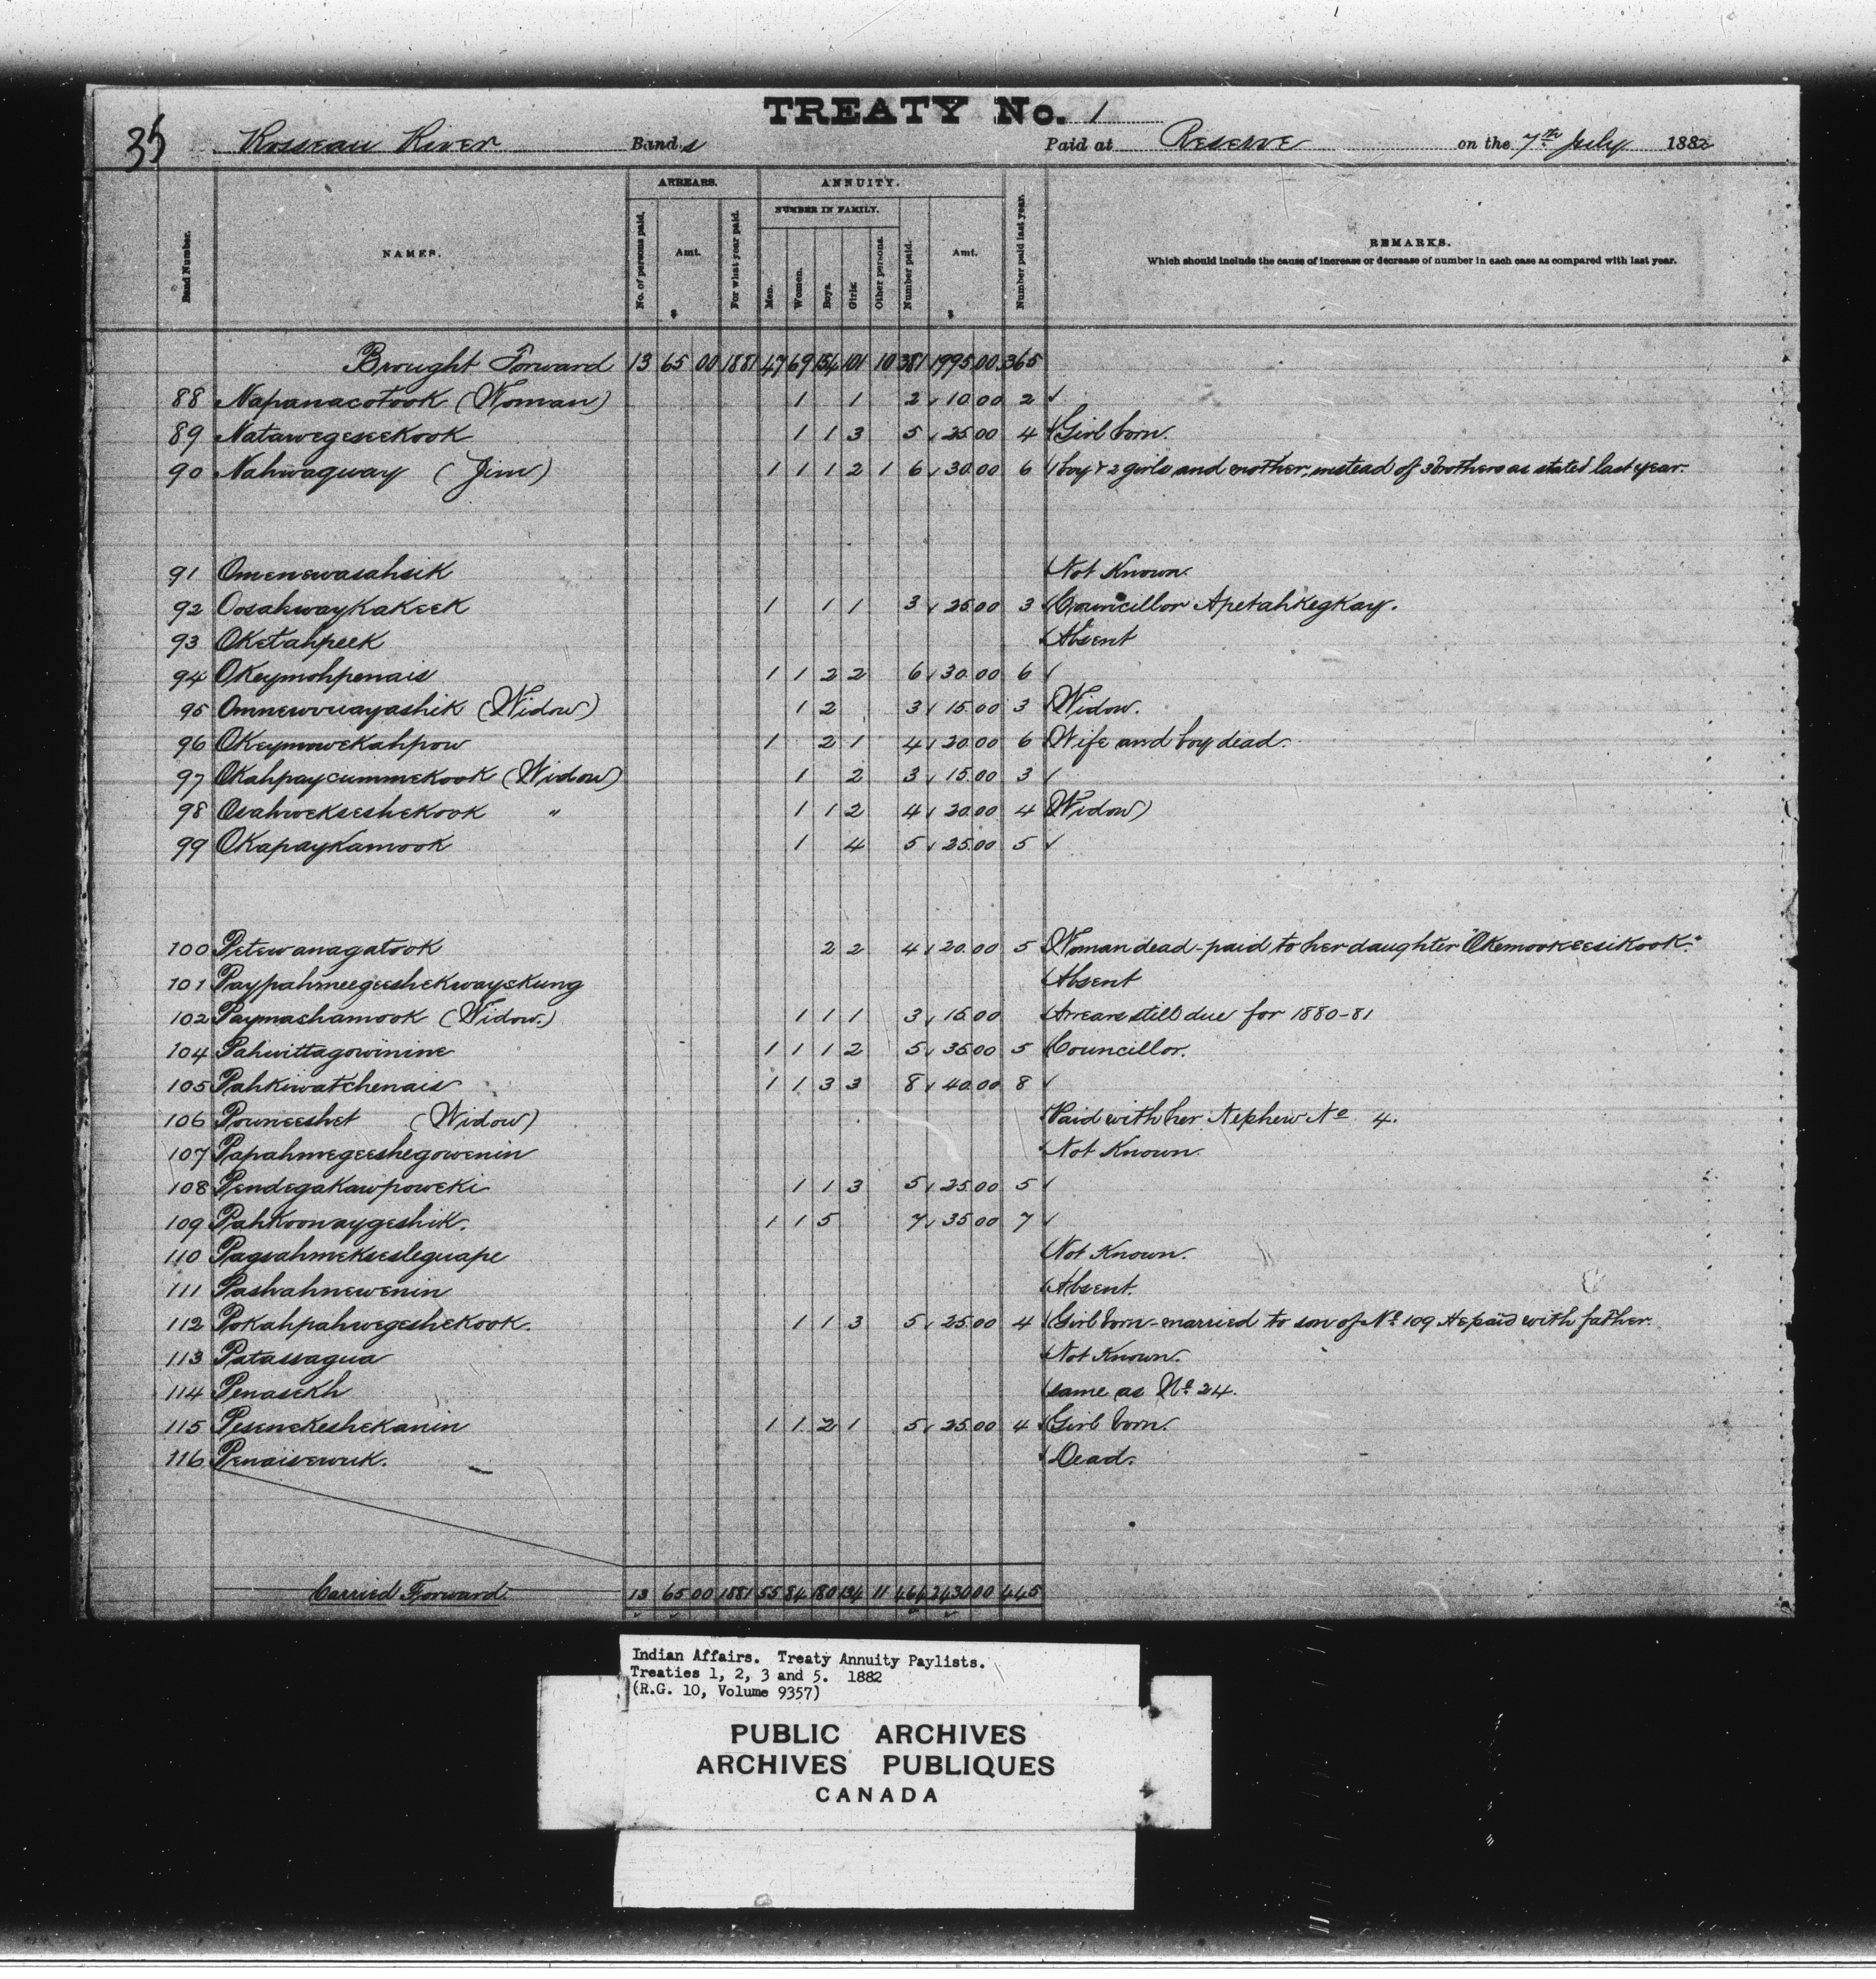 TREATY No. 1
35 Rosseau River Bands Paid at Reserve on the 7th July 1882
Band Number. NAMES. ARREARS. No. of persons paid. Amt. $ For what year paid. ANNUITY. NUMBER IN FAMILY. Men. Women. Boys. Girls. Other persons. Number paid. Amt. $ Number paid last year. REMARKS.
Which should include the cause of increase or decrease of number in each case as compared with last year.
Brought Forward 13 65 00 1881 47 69 154 101 10 381 1995 00 365
88 Napanacotook (Woman) 1 1 2 10 00 2 ✓
89 Natawegeseekook 1 1 3 5 25 00 4 Girl born.
90 Nahwaquay (Jim) 1 1 1 2 1 6 30 00 6 boy & 2 girls and mother, instead of 3 brothers as stated last year.
91 Omenewasahsik Not Known.
92 Oosahwaykakeek 1 1 1 3 25 00 3 Councillor Apetahkegkay.
93 Oketahpeek Absent
94 Okeymohpenais 1 1 2 2 6 30.00 6 ✓
95 Omnewvuayashik (Widow) 1 2 3 15.00 3 Widow.
96 Okeymowekahpow 1 2 1 4 20.00 6 Wife and boy dead.
97 Okahpaycummekook (Widow) 1 2 3 15.00 3 ✓
98 Osahwekseshekook " 1 1 2 4 20.00 4 Widow)
99 Okapaykamook 1 4 5 25.00 5 ✓
100 Petewanagatook 2 2 4 20.00 5 Woman dead - paid to her daughter "Okemookeesikook."
101 Paypahmeegeeshekwayskung Absent
102 Paymashamook (Widow.) 1 1 1 3 15.00 Arrears still due for 1880-81
104 Pahwittagowinine 1 1 1 2 5 35 00 5 Councillor.
105 Pahkiwatchenais 1 1 3 3 8 40.00 8 ✓
106 Powneeshet (Widow) Paid with her Nephew No 4.
107 Papahmegeeshegowenin Not Known
108 Pendegakawpoweki 1 1 3 5 25.00 5 ✓
109 Pahkoonaygeshik. 1 1 5 7 35 00 7 ✓
110 Pagsahmeksesleguape Not Known.
111 Pashahnewenin Absent.
112 Pokahpahwegeshekook. 1 1 3 5 25.00 4 Girl born - married to son of No 109 He paid with father.
113 Patassagua Not Known.
114 Penasekh same as No 24.
115 Pesenekeshekanin 1 1 2 1 5 25.00 4 Girl born.
116 Penaisewuk. Dead.
Carried Forward 13 65 00 1881 55 84 180 134 11 464 2430 00 445
Indian Affairs. Treaty Annuity Paylists.
Treaties 1, 2, 3 and 5. 1882
(R.G. 10, Volume 9357)
PUBLIC ARCHIVES
ARCHIVES PUBLIQUES
CANADA